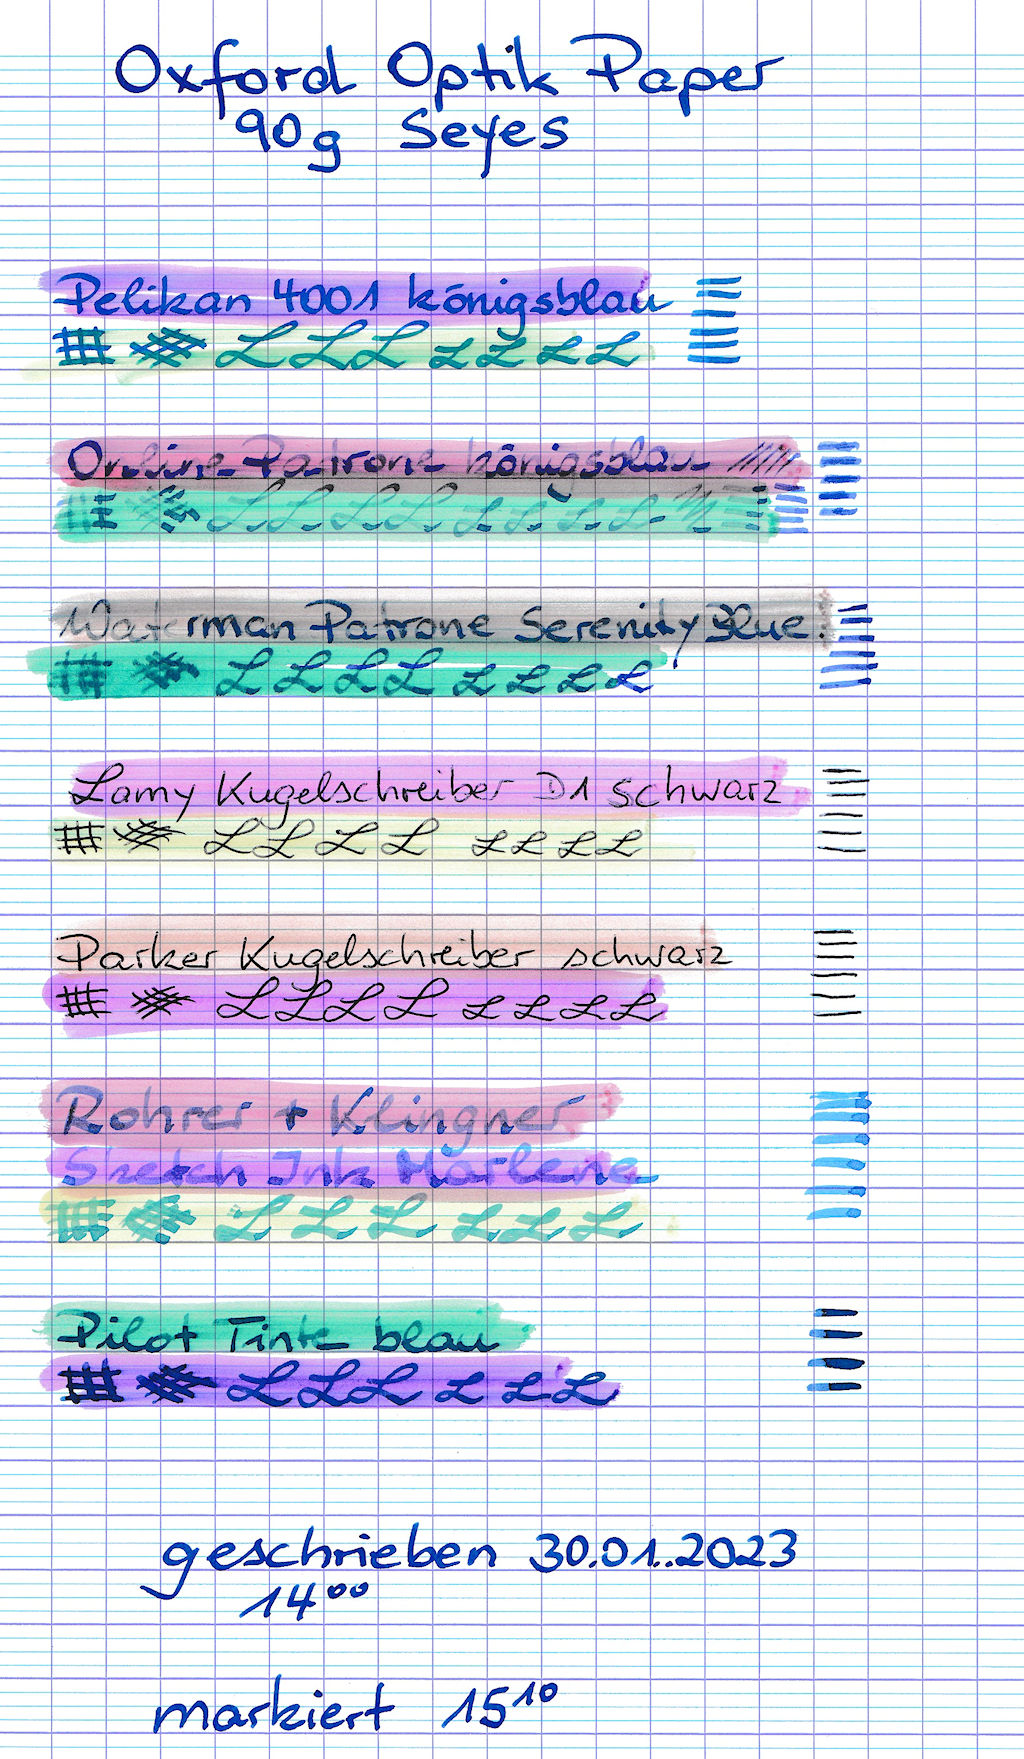 Oxford Optik Paper
90g Seyes
Pelikan 4001 königsblau
LLL LLLL
Online Patrone königsblau
LLLL LLLL
Waterman Patrone Serenity Blue
LLLL LLLL
Lamy Kugelschreiber D1 schwarz
LLLL LLLL
Parker Kugelschreiber schwarz
LLLL LLLL
Rohrer + Klingner
Sketch Ink Marlene
LLL LLL
Pilot Tinte blau
LLL LLL
geschrieben 30.01..2023
14⁰⁰
markiert 15¹⁰